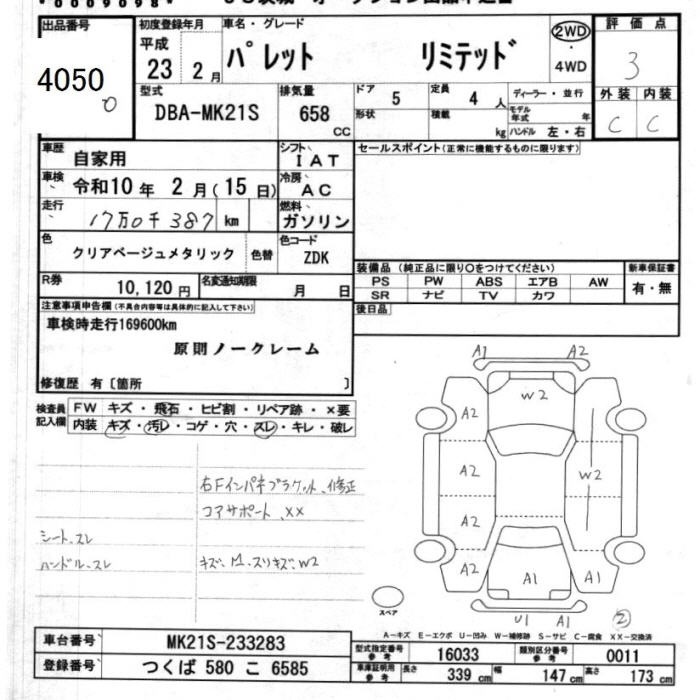 出品番号
4050
0
初度登録年月
平成
23 年 2 月
車名・グレード
パレット リミテッド
2WD
4WD
評価点
3
外装 内装
C C
型式
DBA-MK21S
排気量
658
CC
ドア
5
定員
4 人
形状
積載
kg
ディーラー・並行
モデル年式 年
ハンドル 左・右
車歴
自家用
シフト
IAT
車検
令和10 年 2 月(15 日)
冷房
AC
走行
17万0千387 km
燃料
ガソリン
色
クリアベージュメタリック
色替
色コード
ZDK
R券
10,120 円
名変通知期限
月 日
セールスポイント(正常に機能するものに限ります)
装備品 (純正品に限り〇をつけてください)
PS PW ABS エアB AW
SR ナビ TV カワ
新車保証書
有・無
後日品
注意事項申告欄(不具合内容等は具体的に記入して下さい)
車検時走行169600km
原則ノークレーム
修復歴 有〔箇所 〕
検査員記入欄
FW キズ・飛石・ヒビ割・リペア跡・×要
内装 キズ・汚レ・コゲ・穴・スレ・キレ・破レ
右Fインパネブラケット、修正
コアサポート、XX
シート、スレ
ハンドル、スレ
キズ、凹、スリキズ、W2
A1 A2
W2
A2
A2 W2
A2
A2 A1 A1
U1 A1
2
スペア
A-キズ E-エクボ U-凹み W-補修跡 S-サビ C-腐食 XX-交換済
車台番号
MK21S-233283
登録番号
つくば 580 こ 6585
型式指定番号 参考
16033
類別区分番号 参考
0011
車庫証明用 参考
長さ 339 cm 幅 147 cm 高さ 173 cm